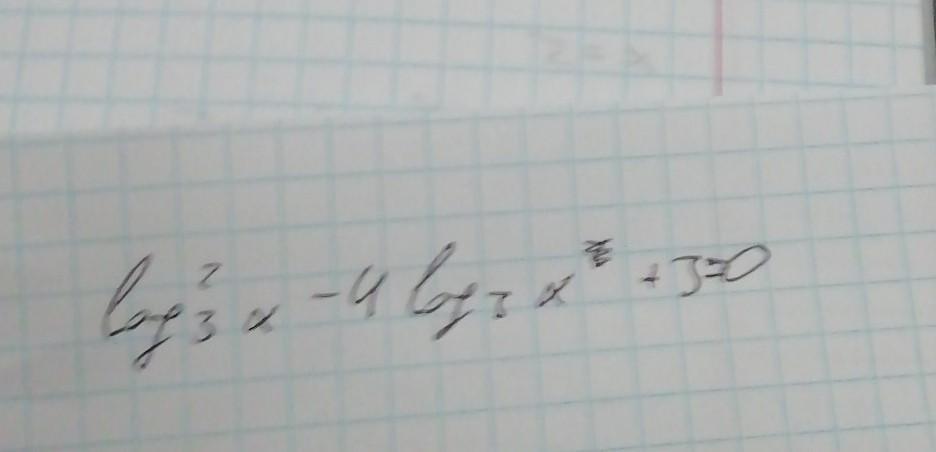 log₃²x - 4 log₃x + 3 = 0